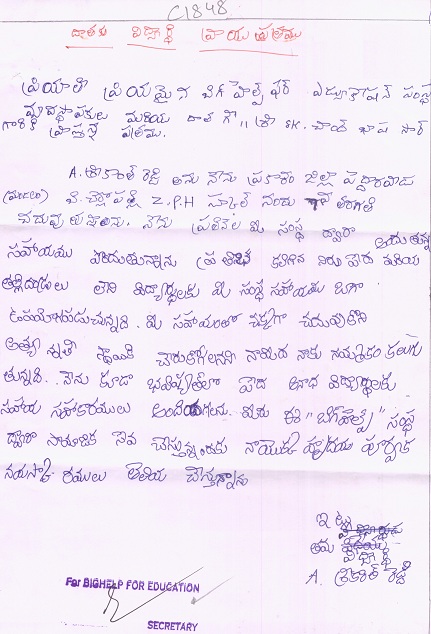 C1848
దాతకు విద్యార్థి వ్రాయు పత్రము
ప్రియాతి ప్రియమైన బిగ్ హెల్ప్ ఫర్ ఎడ్యుకేషన్ సంస్థ
వ్యవస్థాపకులు మరియు దాత గౌ॥ శ్రీ SK. చాంద్ భాష సార్
గారికి వ్రాస్తున్న పత్రము.
A. శ్రీకాంత్ రెడ్డి అను నేను ప్రకాశం జిల్లా పెద్దారవీడు
(మండలం) Z.P.H స్కూల్ నందు తరగతి
చదువు తున్నాను. నేను ప్రతినెల మీ సంస్థ ద్వారా అందుతున్న
సహాయము పొందుతున్నాను ప్రతిభ కలిగిన నిరుపేద మరియు
తల్లిదండ్రులు లేని విద్యార్థులకు మీ సంస్థ సహాయం బాగా
ఉపయోగపడుచున్నది. మీ సహాయంతో చక్కగా చదువుకొని
అత్యున్నత స్థాయికి చేరుకోగలనని నామీద నాకు నమ్మకం కలుగు
తున్నది. నేను కూడా భవిష్యత్‌లో పేద అనాధ విద్యార్థులకు
సహాయ సహకారములు అందించగలను. మీరు ఈ "బిగ్‌హెల్ప్" సంస్థ
ద్వారా సామాజిక సేవ చేస్తున్నందుకు నాయొక్క హృదయ పూర్వక
నమస్కారములు తెలియ చేస్తున్నాను
ఇట్లు
తమ
విద్యార్థి
A. శ్రీకాంత్ రెడ్డి
For BIGHELP FOR EDUCATION
SECRETARY